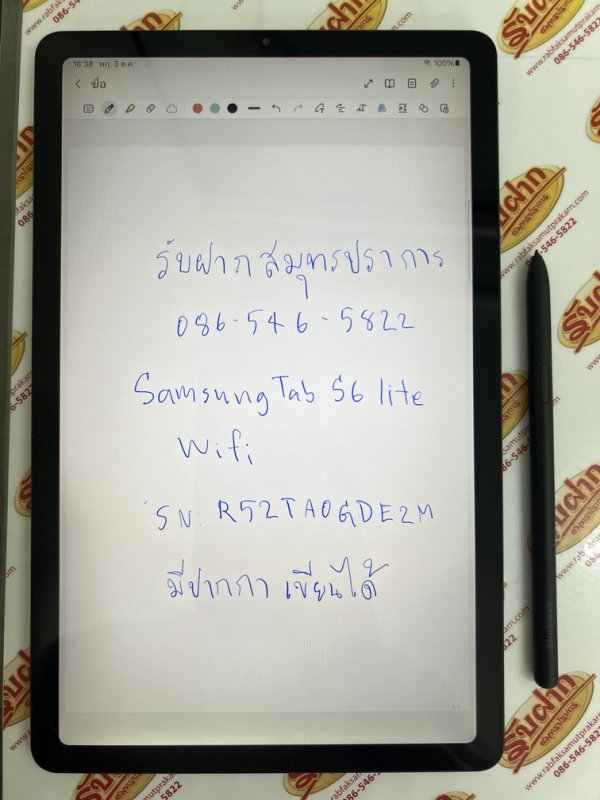 16:38 พฤ. 3 ต.ค.
100%
ชื่อ
รับฝากสมุทรปราการ
086-546-5822
Samsung Tab S6 lite
Wifi
SN: R52TA0GDE2M
มีปากกา เขียนได้
1/1
SAMSUNG
รับฝาก
สมุทรปราการ
www.rabfaksamutprakarn.com
086-546-5822